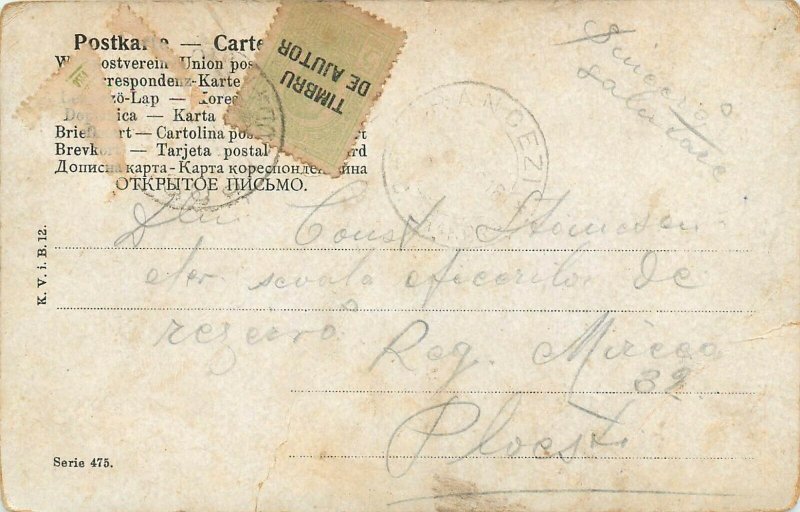 Postkarte — Carte
Weltpostverein Union pos
Correspondenz-Karte
Levelezö-Lap — Kores
Dopisnica — Karta
Briefkaart — Cartolina pos art
Brevkort — Tarjeta postal ard
Дописна карта - Карта кореспонденційна
ОТКРЫТОЕ ПИСЬМО.
TIMBRU
DE AJUTOR
FRANCEZI
Sincera
salutare
Dlui Const. Stomosen
elev scoala oficerilor de
rezerva
Reg. Mircea
32
Ploesti
K. V. i. B. 12.
Serie 475.